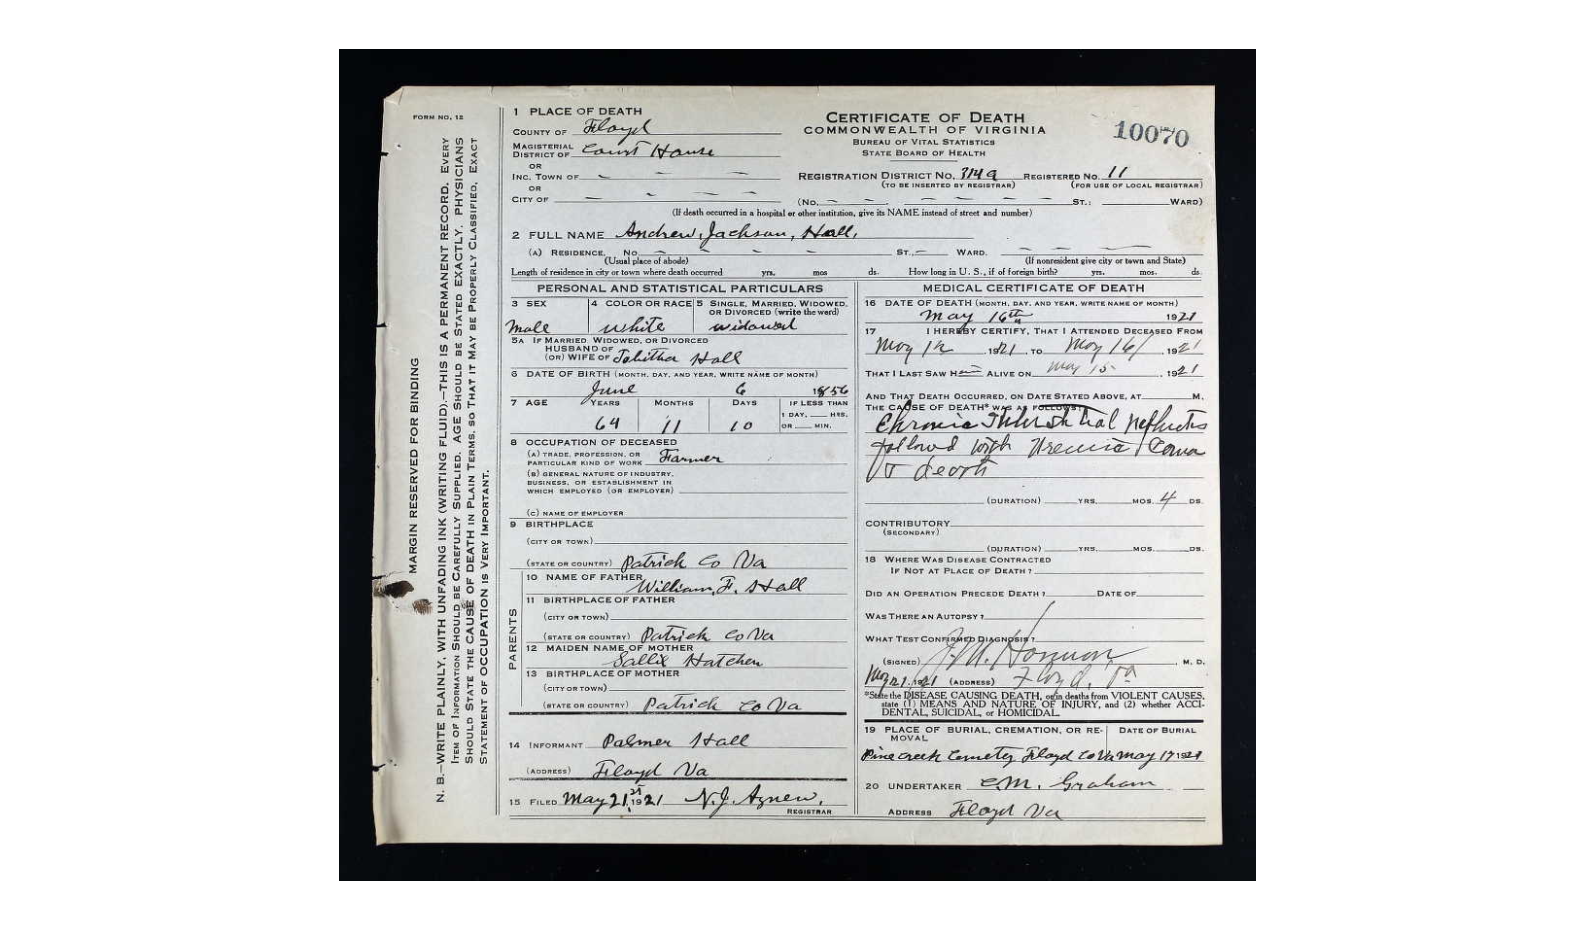 FORM NO. 12
MARGIN RESERVED FOR BINDING
N. B.—WRITE PLAINLY, WITH UNFADING INK (WRITING FLUID).—THIS IS A PERMANENT RECORD. EVERY
ITEM OF INFORMATION SHOULD BE CAREFULLY SUPPLIED. AGE SHOULD BE STATED EXACTLY. PHYSICIANS
SHOULD STATE THE CAUSE OF DEATH IN PLAIN TERMS, SO THAT IT MAY BE PROPERLY CLASSIFIED. EXACT
STATEMENT OF OCCUPATION IS VERY IMPORTANT.
1 PLACE OF DEATH
COUNTY OF Floyd
MAGISTERIAL
DISTRICT OF Court House
OR
INC. TOWN OF
OR
CITY OF
CERTIFICATE OF DEATH
COMMONWEALTH OF VIRGINIA
BUREAU OF VITAL STATISTICS
STATE BOARD OF HEALTH
10070
REGISTRATION DISTRICT NO. 314a REGISTERED NO. 11
(TO BE INSERTED BY REGISTRAR) (FOR USE OF LOCAL REGISTRAR)
(NO. ST.; WARD)
(If death occurred in a hospital or other institution, give its NAME instead of street and number)
2 FULL NAME Andrew Jackson Hall
(A) RESIDENCE. NO. ST. WARD.
(Usual place of abode) (If nonresident give city or town and State)
Length of residence in city or town where death occurred yrs. mos ds. How long in U. S., if of foreign birth? yrs. mos. ds.
PERSONAL AND STATISTICAL PARTICULARS
3 SEX 4 COLOR OR RACE 5 SINGLE, MARRIED, WIDOWED,
OR DIVORCED (write the word)
Male White Widowed
5A IF MARRIED, WIDOWED, OR DIVORCED
HUSBAND OF
(OR) WIFE OF Tabitha Hall
6 DATE OF BIRTH (MONTH, DAY, AND YEAR, WRITE NAME OF MONTH)
June 6 1856
7 AGE YEARS MONTHS DAYS IF LESS THAN
1 DAY, HRS.
64 11 10 OR MIN.
8 OCCUPATION OF DECEASED
(A) TRADE, PROFESSION, OR
PARTICULAR KIND OF WORK Farmer
(B) GENERAL NATURE OF INDUSTRY,
BUSINESS, OR ESTABLISHMENT IN
WHICH EMPLOYED (OR EMPLOYER)
(C) NAME OF EMPLOYER
9 BIRTHPLACE
(CITY OR TOWN)
(STATE OR COUNTRY) Patrick Co Va
PARENTS
10 NAME OF FATHER
William F. Hall
11 BIRTHPLACE OF FATHER
(CITY OR TOWN)
(STATE OR COUNTRY) Patrick Co Va
12 MAIDEN NAME OF MOTHER
Sallie Hatcher
13 BIRTHPLACE OF MOTHER
(CITY OR TOWN)
(STATE OR COUNTRY) Patrick Co Va
14 INFORMANT Palmer Hall
(ADDRESS) Floyd Va
15 FILED May 21st 1921 N.J. Agnew.
REGISTRAR
MEDICAL CERTIFICATE OF DEATH
16 DATE OF DEATH (MONTH, DAY, AND YEAR, WRITE NAME OF MONTH)
May 16th 1921
17 I HEREBY CERTIFY, THAT I ATTENDED DECEASED FROM
May 12 1921 TO May 16 1921
THAT I LAST SAW HIM ALIVE ON May 15 1921
AND THAT DEATH OCCURRED, ON DATE STATED ABOVE, AT M.
THE CAUSE OF DEATH* WAS AS FOLLOWS:
Chronic Interstitial Nephritis
followed with Uremia Coma
& death
(DURATION) YRS. MOS. 4 DS.
CONTRIBUTORY
(SECONDARY)
(DURATION) YRS. MOS. DS.
18 WHERE WAS DISEASE CONTRACTED
IF NOT AT PLACE OF DEATH?
DID AN OPERATION PRECEDE DEATH? DATE OF
WAS THERE AN AUTOPSY?
WHAT TEST CONFIRMED DIAGNOSIS?
(SIGNED) J. M. M. D.
May 21, 1921 (ADDRESS) Floyd, Va
*State the DISEASE CAUSING DEATH, or in deaths from VIOLENT CAUSES,
state (1) MEANS AND NATURE OF INJURY, and (2) whether ACCI-
DENTAL, SUICIDAL, or HOMICIDAL.
19 PLACE OF BURIAL, CREMATION, OR RE- DATE OF BURIAL
MOVAL
Pine Creek Cemetery Floyd Co Va May 17 1921
20 UNDERTAKER C.M. Graham
ADDRESS Floyd Va